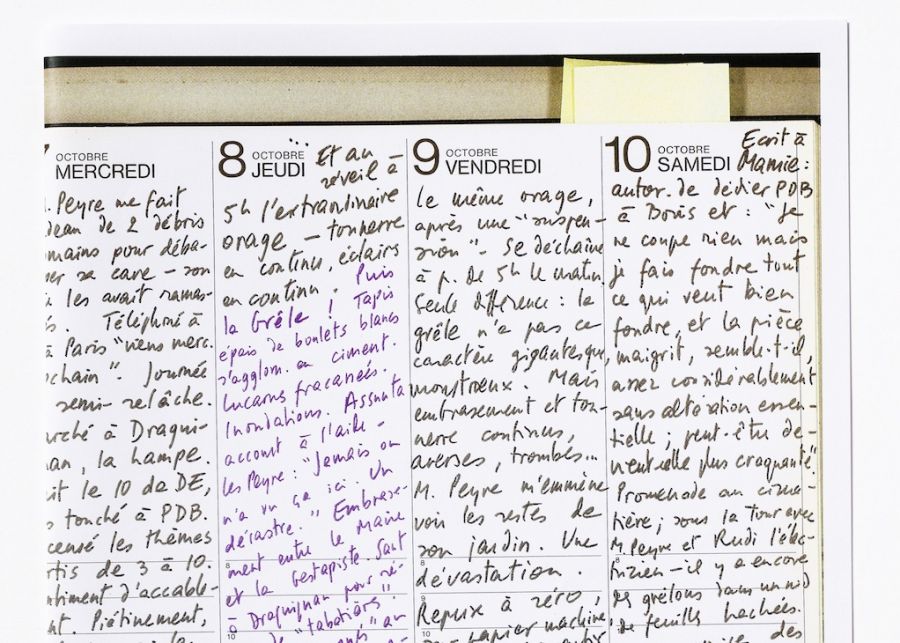 OCTOBRE
MERCREDI
. Peyre me fait
de 2 débris
pour déba-
sa cave – son
les avait ramas-
s. Téléphoné à
à Paris "viens merc.
chain". Journée
semi-relâche.
rché à Dragui-
an, la hampe.
it le 10 da DE,
touché à PDB.
censé les thèmes
rtis de 3 à 10.
ntiment d'accable-
nt. Piétinement,
8 OCTOBRE
JEUDI
Et au
réveil à
5h l'extraordinaire
orage – tonnerre
en continu, éclairs
en continu. Puis
la Grêle ! Tapis
épais de boulets blancs
s'agglom. en ciment.
Lucarns fracassées.
Inondations. Assunta
accourt à l'aide –
les Peyre : "Jamais on
n'a vu ça ici. Un
désastre." Embrasse-
ment entre le Maire
et la Gestapiste. Saut
à Draguignan pour ré-
"tabatières".
8
10
9 OCTOBRE
VENDREDI
le même orage,
après une "suspen-
sion". Se déchaîne
à p. de 5h le matin.
Seule différence : la
grêle n'a pas ce
caractère gigantesque,
monstrueux. Mais
embrasement et ton-
nerre continus,
averses, trombes...
M. Peyre m'emmène
voir les restes de
son jardin. Une
dévastation.
Repux à zéro,
papier machine
8
9
10
10 OCTOBRE
SAMEDI
Ecrit à
Mamie :
autor. de dédier PDB
à Boris et : "Je
ne coupe rien mais
je fais fondre tout
ce qui veut bien
fondre, et la pièce
maigrit, semble-t-il,
assez considérablement
sans altération essen-
tielle ; peut-être de-
vient-elle plus craquante".
Promenade au cime-
tière ; sous la Tour avec
M. Peyre et Rudi l'élec-
tricien – il y a encore
des grêlons dans un nid
de feuilles hachées.
des
8
9